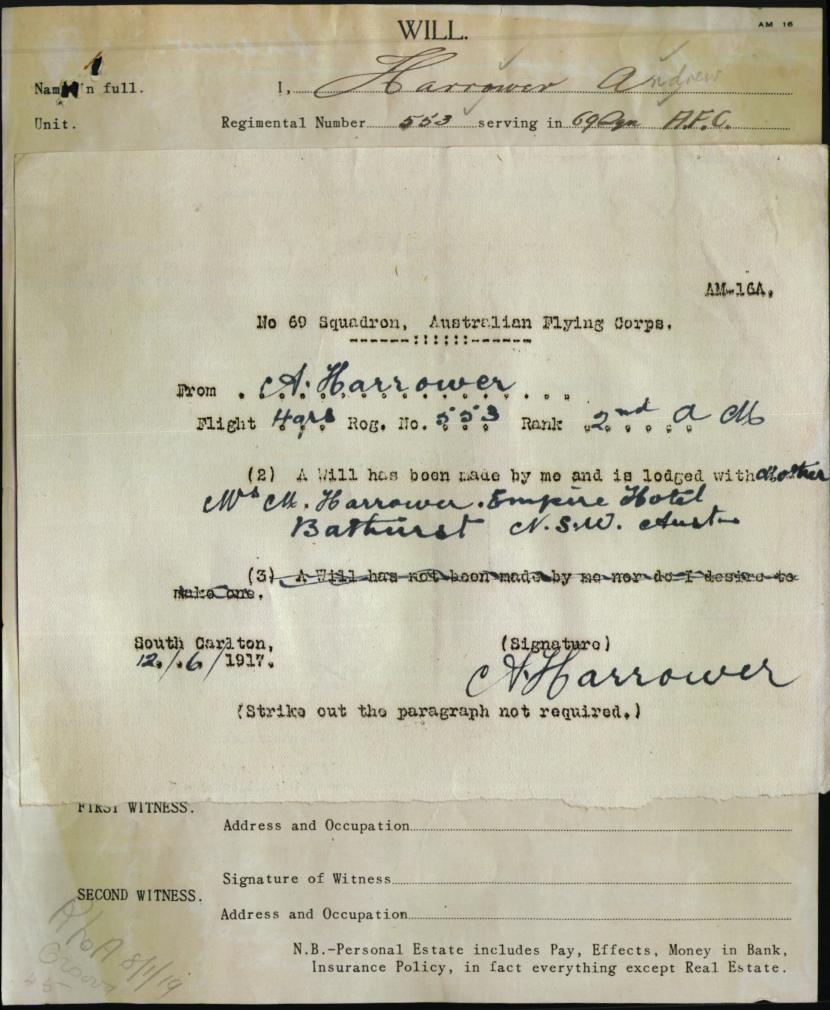 AM 16
WILL.
1
Name in full. I, Harrower Andrew
Unit. Regimental Number 553 serving in 69 Sqn A.F.C.
AM-16A.
No 69 Squadron, Australian Flying Corps.
------::::::------
From . A. Harrower
Flight Hqrs Reg. No. 553 Rank 2nd A M
(2) A Will has been made by me and is lodged with Mother
Mrs M. Harrower. Empire Hotel
Bathurst N.S.W. Aust
(3) A Will has not been made by me nor do I desire to
make one.
South Carlton, (Signature)
12./.6/1917. A. Harrower
(Strike out the paragraph not required.)
FIRST WITNESS.
Address and Occupation
Signature of Witness
SECOND WITNESS.
Address and Occupation
N.B.-Personal Estate includes Pay, Effects, Money in Bank,
Insurance Policy, in fact everything except Real Estate.
8/1/19